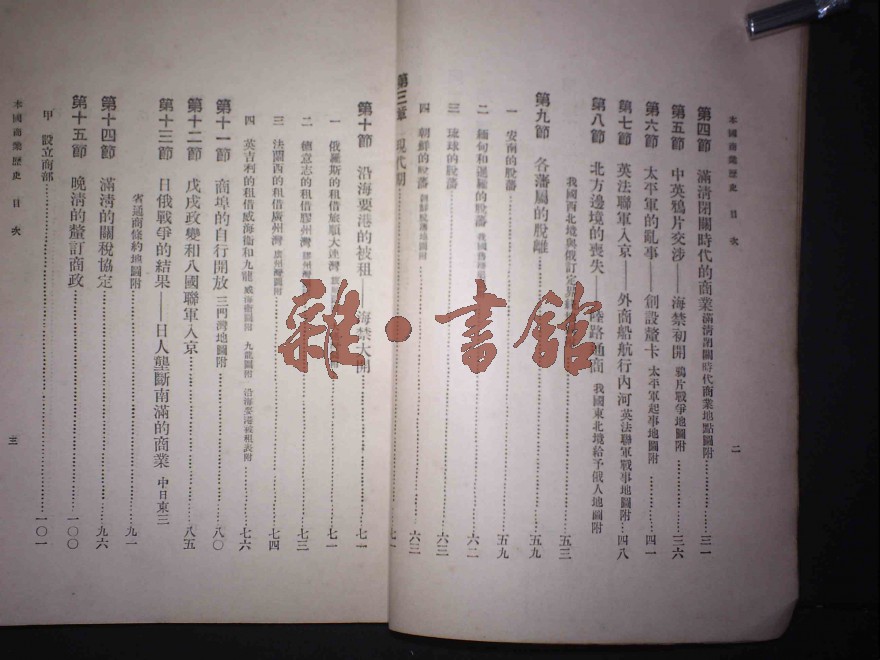 本國商業歷史 目次
二
第四節 滿清閉關時代的商業 滿清閉關時代商業地點圖附 三一
第五節 中英鴉片交涉——海禁初開 鴉片戰爭地圖附 三六
第六節 太平軍的亂事——創設釐卡 太平軍起事地圖附 四一
第七節 英法聯軍入京——外商船航行內河 英法聯軍戰事地圖附 四八
第八節 北方邊境的喪失——陸路通商 我國東北境給予俄人地圖附
我國西北境與俄訂定 五三
第九節 各藩屬的脫離 五九
一 安南的脫藩 五九
二 緬甸和暹羅的脫藩 六二
三 琉球的脫藩 六三
四 朝鮮的脫藩 六三
第三章 現代期 七一
第十節 沿海要港的被租——海禁大開 七一
一 俄羅斯的租借旅順大連灣 七一
二 德意志的租借膠州灣 七三
三 法蘭西的租借廣州灣 廣州灣圖附 七四
四 英吉利的租借威海衞和九龍 威海衞圖附 九龍圖附 沿海要港被租表附 七六
第十一節 商埠的自行開放 三門灣地圖附 八〇
第十二節 戊戌政變和八國聯軍入京 八五
第十三節 日俄戰爭的結果——日人壟斷南滿的商業 中日東三
省通商條約地圖附 九一
第十四節 滿清的關稅協定 九六
第十五節 晚清的釐訂商政 一〇〇
甲 設立商部 一〇一
本國商業歷史 目次
三
雜·書館